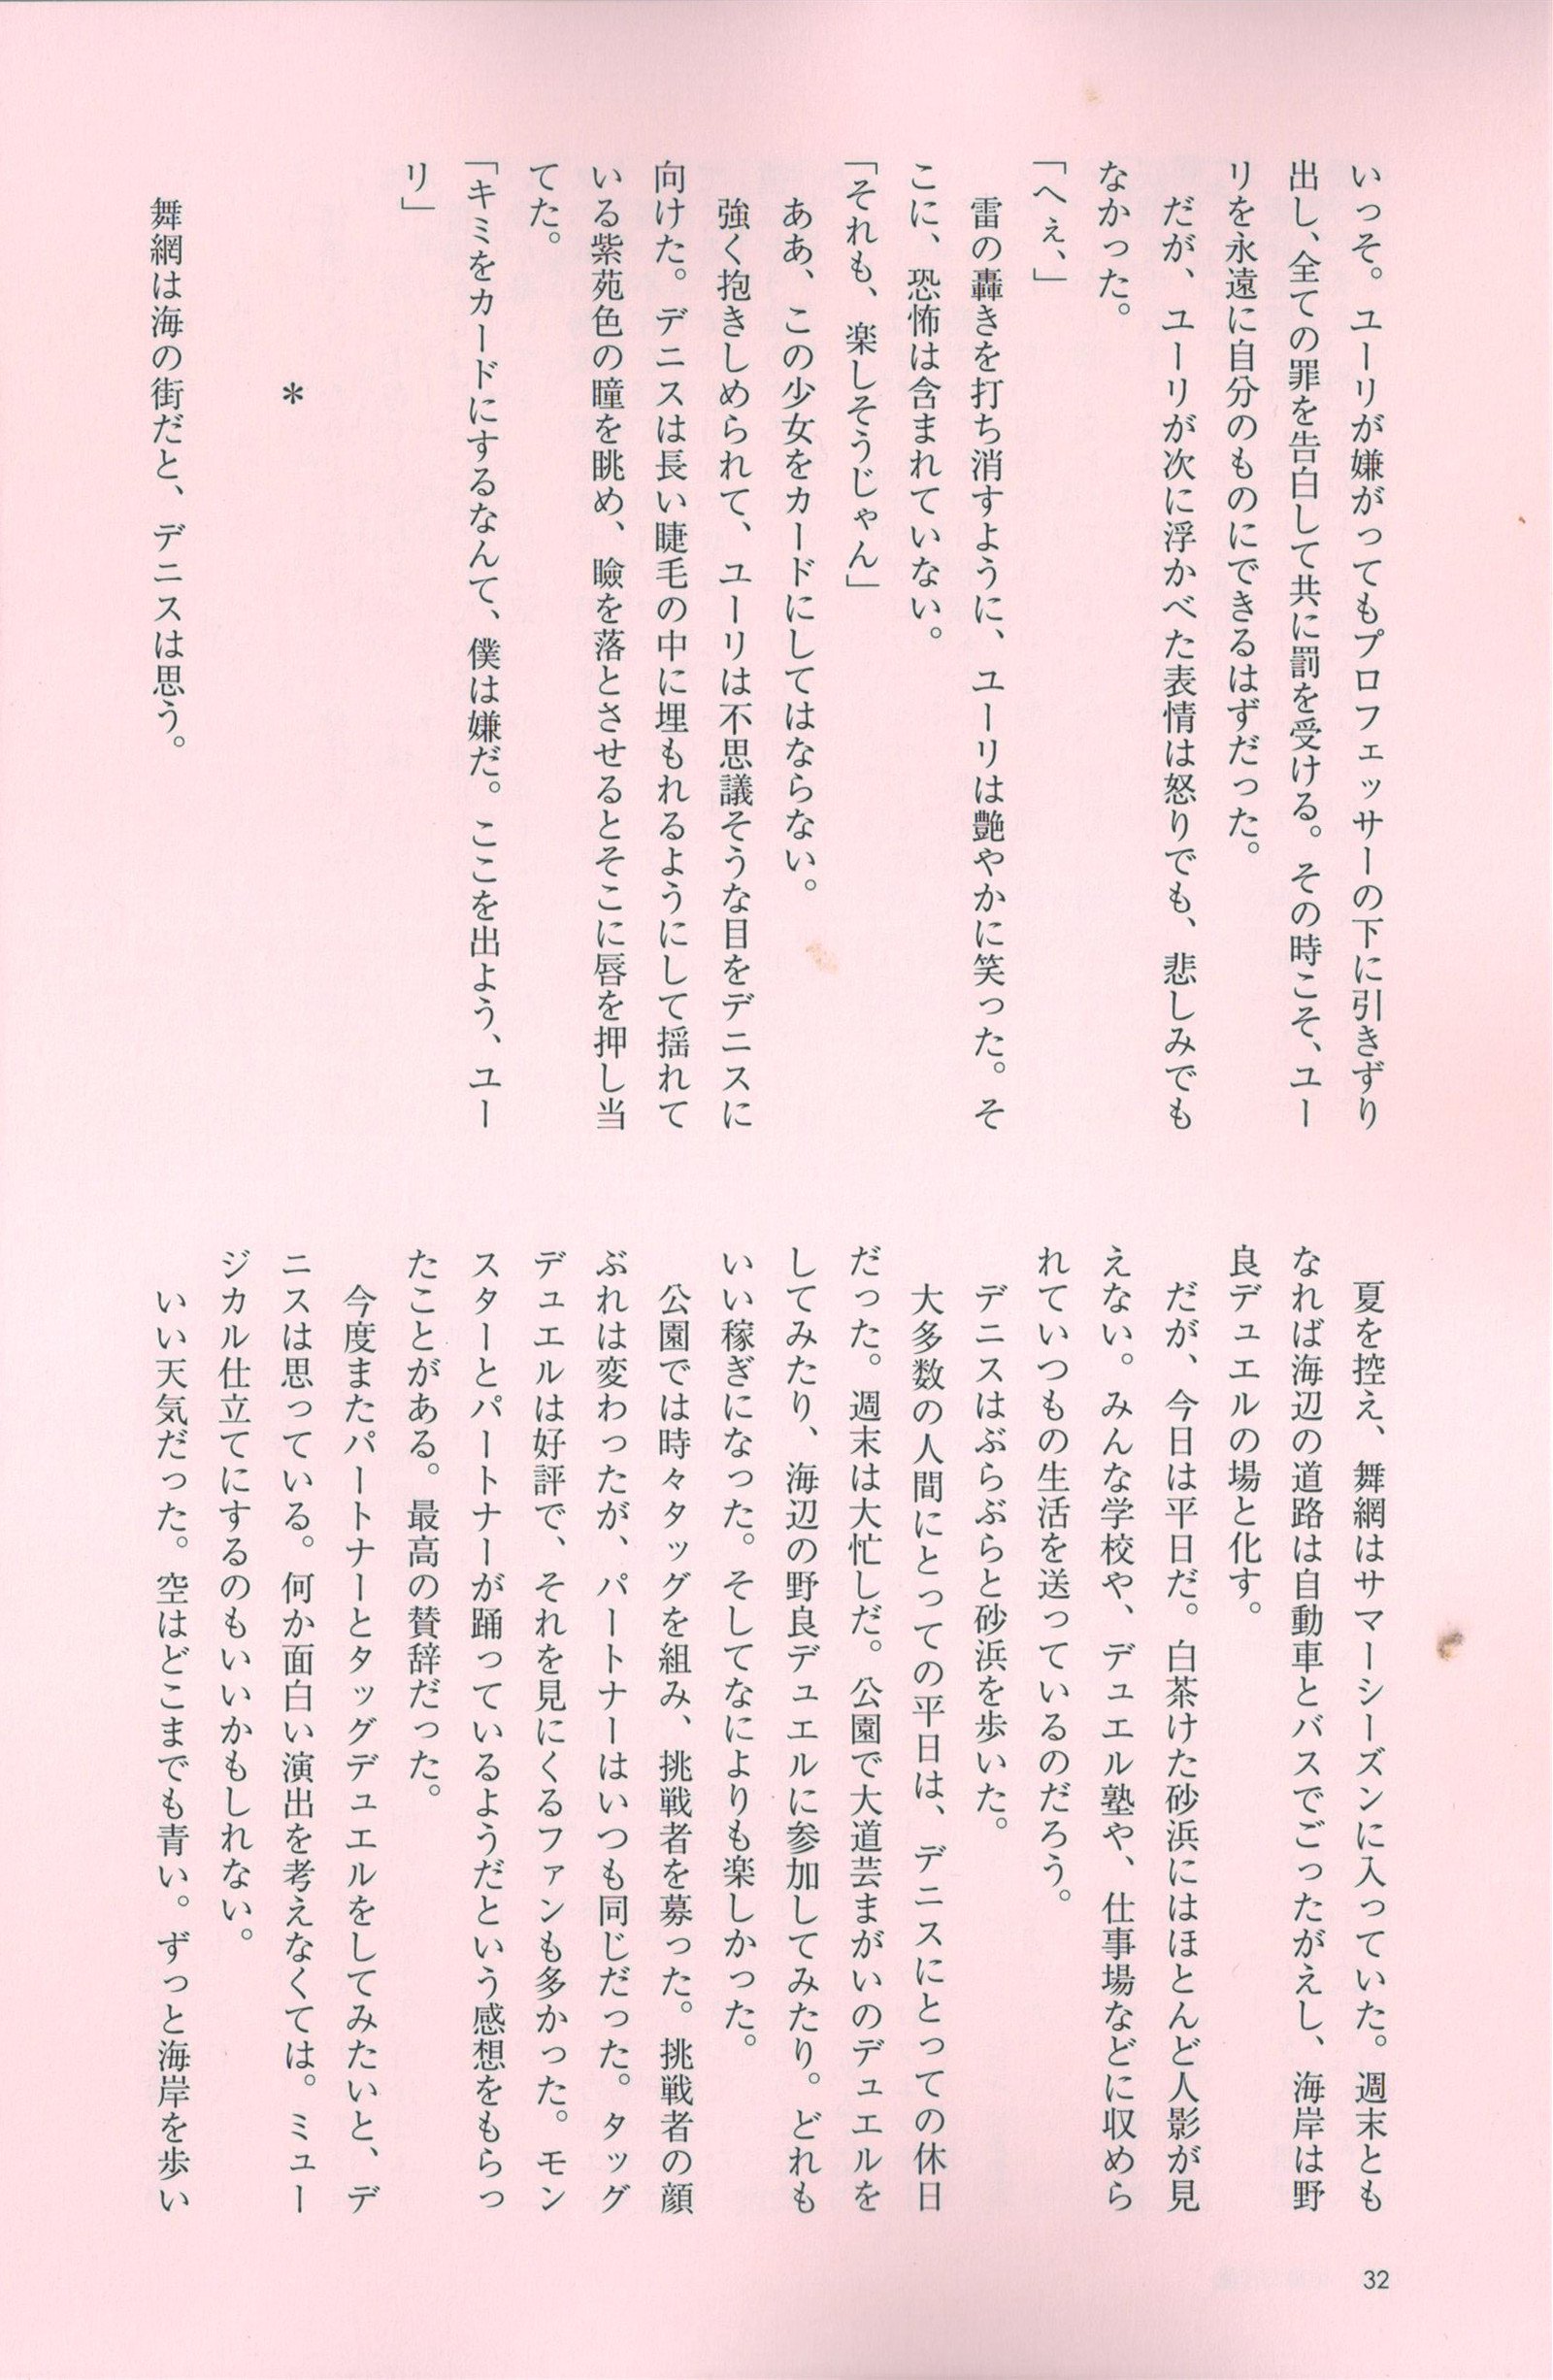 いっそ。ユーリが嫌がってもプロフェッサーの下に引きずり
出し、全ての罪を告白して共に罰を受ける。その時こそ、ユー
リを永遠に自分のものにできるはずだった。
だが、ユーリが次に浮かべた表情は怒りでも、悲しみでも
なかった。
「へぇ、」
雷の轟きを打ち消すように、ユーリは艶やかに笑った。そ
こに、恐怖は含まれていない。
「それも、楽しそうじゃん」
ああ、この少女をカードにしてはならない。
強く抱きしめられて、ユーリは不思議そうな目をデニスに
向けた。デニスは長い睫毛の中に埋もれるようにして揺れて
いる紫苑色の瞳を眺め、瞼を落とさせるとそこに唇を押し当
てた。
「キミをカードにするなんて、僕は嫌だ。ここを出よう、ユー
リ」
＊
舞網は海の街だと、デニスは思う。
夏を控え、舞網はサマーシーズンに入っていた。週末とも
なれば海辺の道路は自動車とバスでごったがえし、海岸は野
良デュエルの場と化す。
だが、今日は平日だ。白茶けた砂浜にはほとんど人影が見
えない。みんな学校や、デュエル塾や、仕事場などに収めら
れていつもの生活を送っているのだろう。
デニスはぶらぶらと砂浜を歩いた。
大多数の人間にとっての平日は、デニスにとっての休日
だった。週末は大忙しだ。公園で大道芸まがいのデュエルを
してみたり、海辺の野良デュエルに参加してみたり。どれも
いい稼ぎになった。そしてなによりも楽しかった。
公園では時々タッグを組み、挑戦者を募った。挑戦者の顔
ぶれは変わったが、パートナーはいつも同じだった。タッグ
デュエルは好評で、それを見にくるファンも多かった。モン
スターとパートナーが踊っているようだという感想をもらっ
たことがある。最高の賛辞だった。
今度またパートナーとタッグデュエルをしてみたいと、デ
ニスは思っている。何か面白い演出を考えなくては。ミュー
ジカル仕立てにするのもいいかもしれない。
いい天気だった。空はどこまでも青い。ずっと海岸を歩い
32